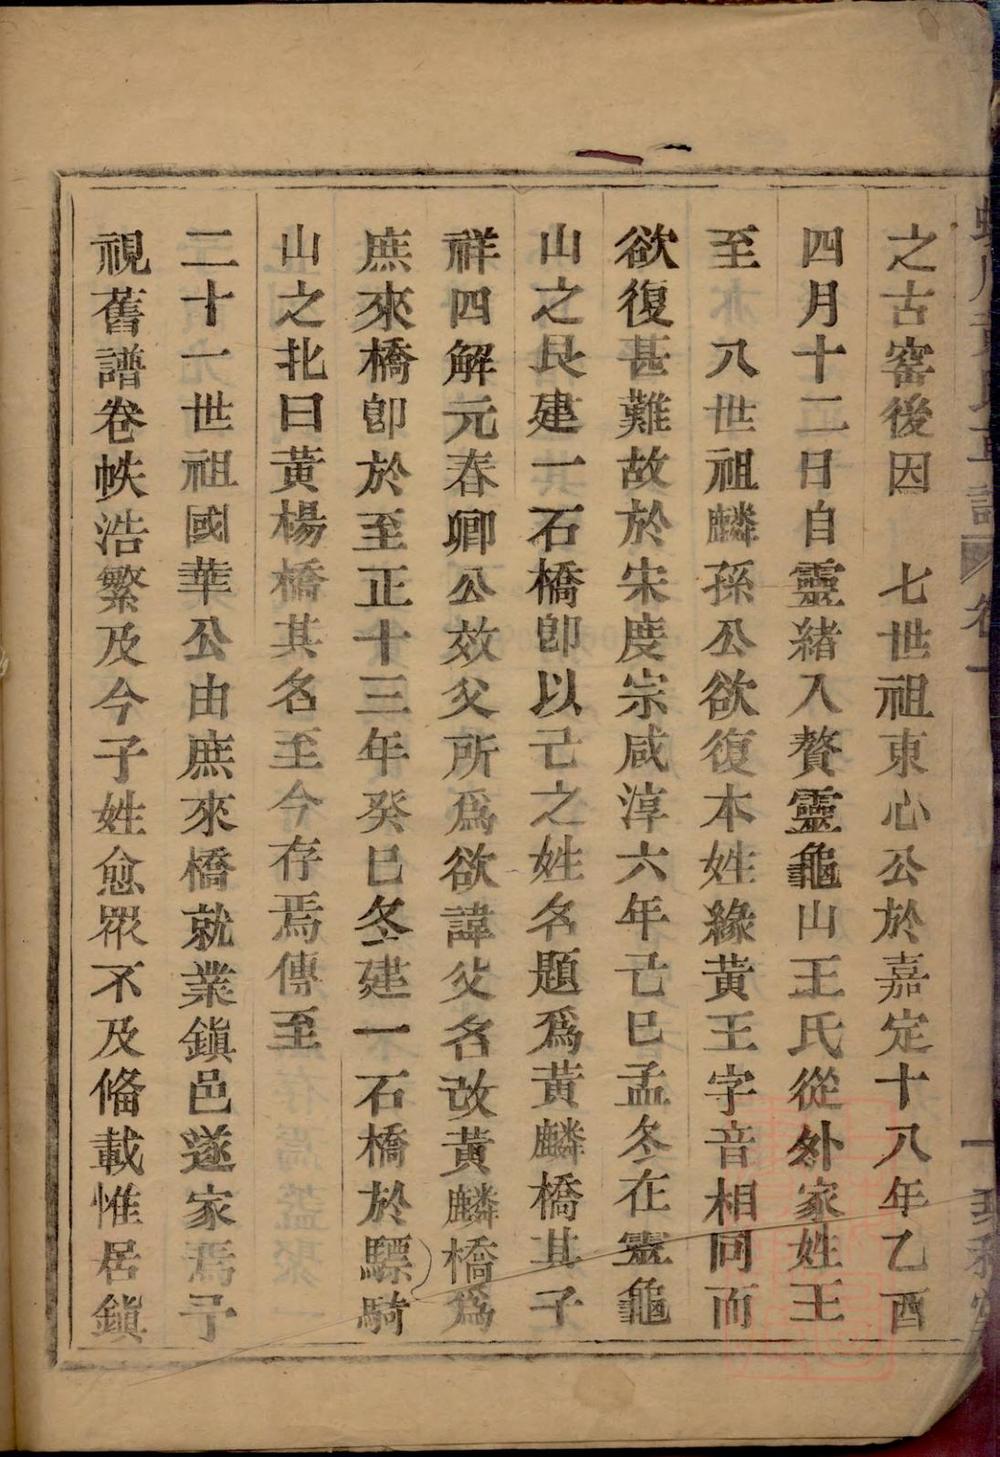 之古窰後因　七世祖東心公於嘉定十八年乙酉
四月十二日自靈緒入贅靈龜山王氏從外家姓王
至八世祖麟孫公欲復本姓緣黃王字音相同而
欲復甚難故於宋度宗咸淳六年己巳孟冬在靈龜
山之艮建一石橋卽以己之姓名題爲黃麟橋其子
祥四解元春卿公效父所爲欲諱父名改黃麟橋爲
庶來橋卽於至正十三年癸巳冬建一石橋於驃騎
山之北曰黃楊橋其名至今存焉傳至
二十一世祖國華公由庶來橋就業鎭邑遂家焉予
視舊譜卷帙浩繁及今子姓愈眾不及偹載惟居鎭